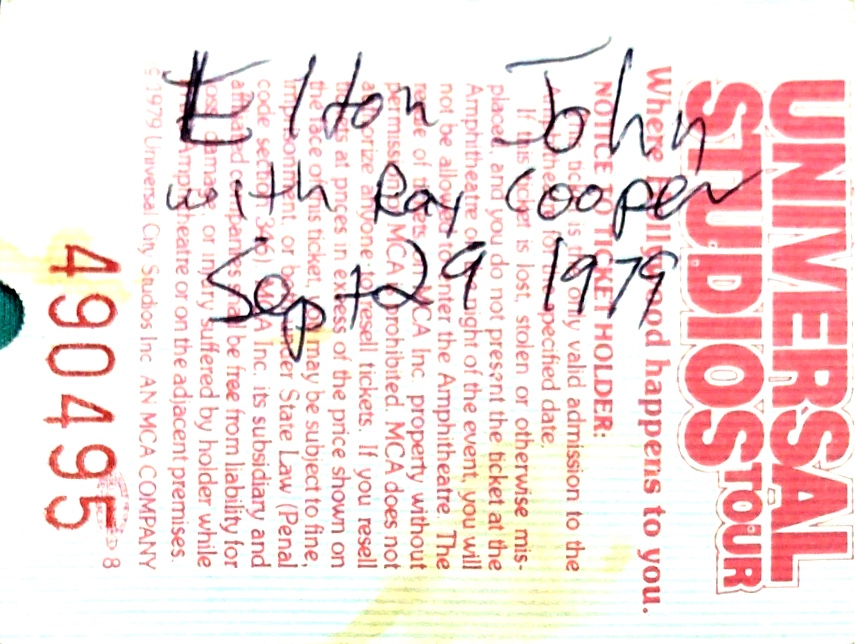 Elton John
with Ray Cooper
Sept 29 1979
UNIVERSAL
STUDIOS TOUR
Where Hollywood happens to you.
NOTICE TO TICKET HOLDER:
This ticket is the only valid admission to the
Amphitheatre for the specified date.
If this ticket is lost, stolen or otherwise mis-
placed, and you do not present the ticket at the
Amphitheatre on the night of the event, you will
not be allowed to enter the Amphitheatre. The
resale of tickets on MCA Inc. property without
permission of MCA is prohibited. MCA does not
authorize anyone to resell tickets. If you resell
tickets at prices in excess of the price shown on
the face of this ticket, you may be subject to fine,
imprisonment, or both under State Law (Penal
code section 346). MCA Inc. its subsidiary and
affiliated companies shall be free from liability for
loss, damage, or injury suffered by holder while
in the Amphitheatre or on the adjacent premises.
© 1979 Universal City Studios Inc. AN MCA COMPANY
490495